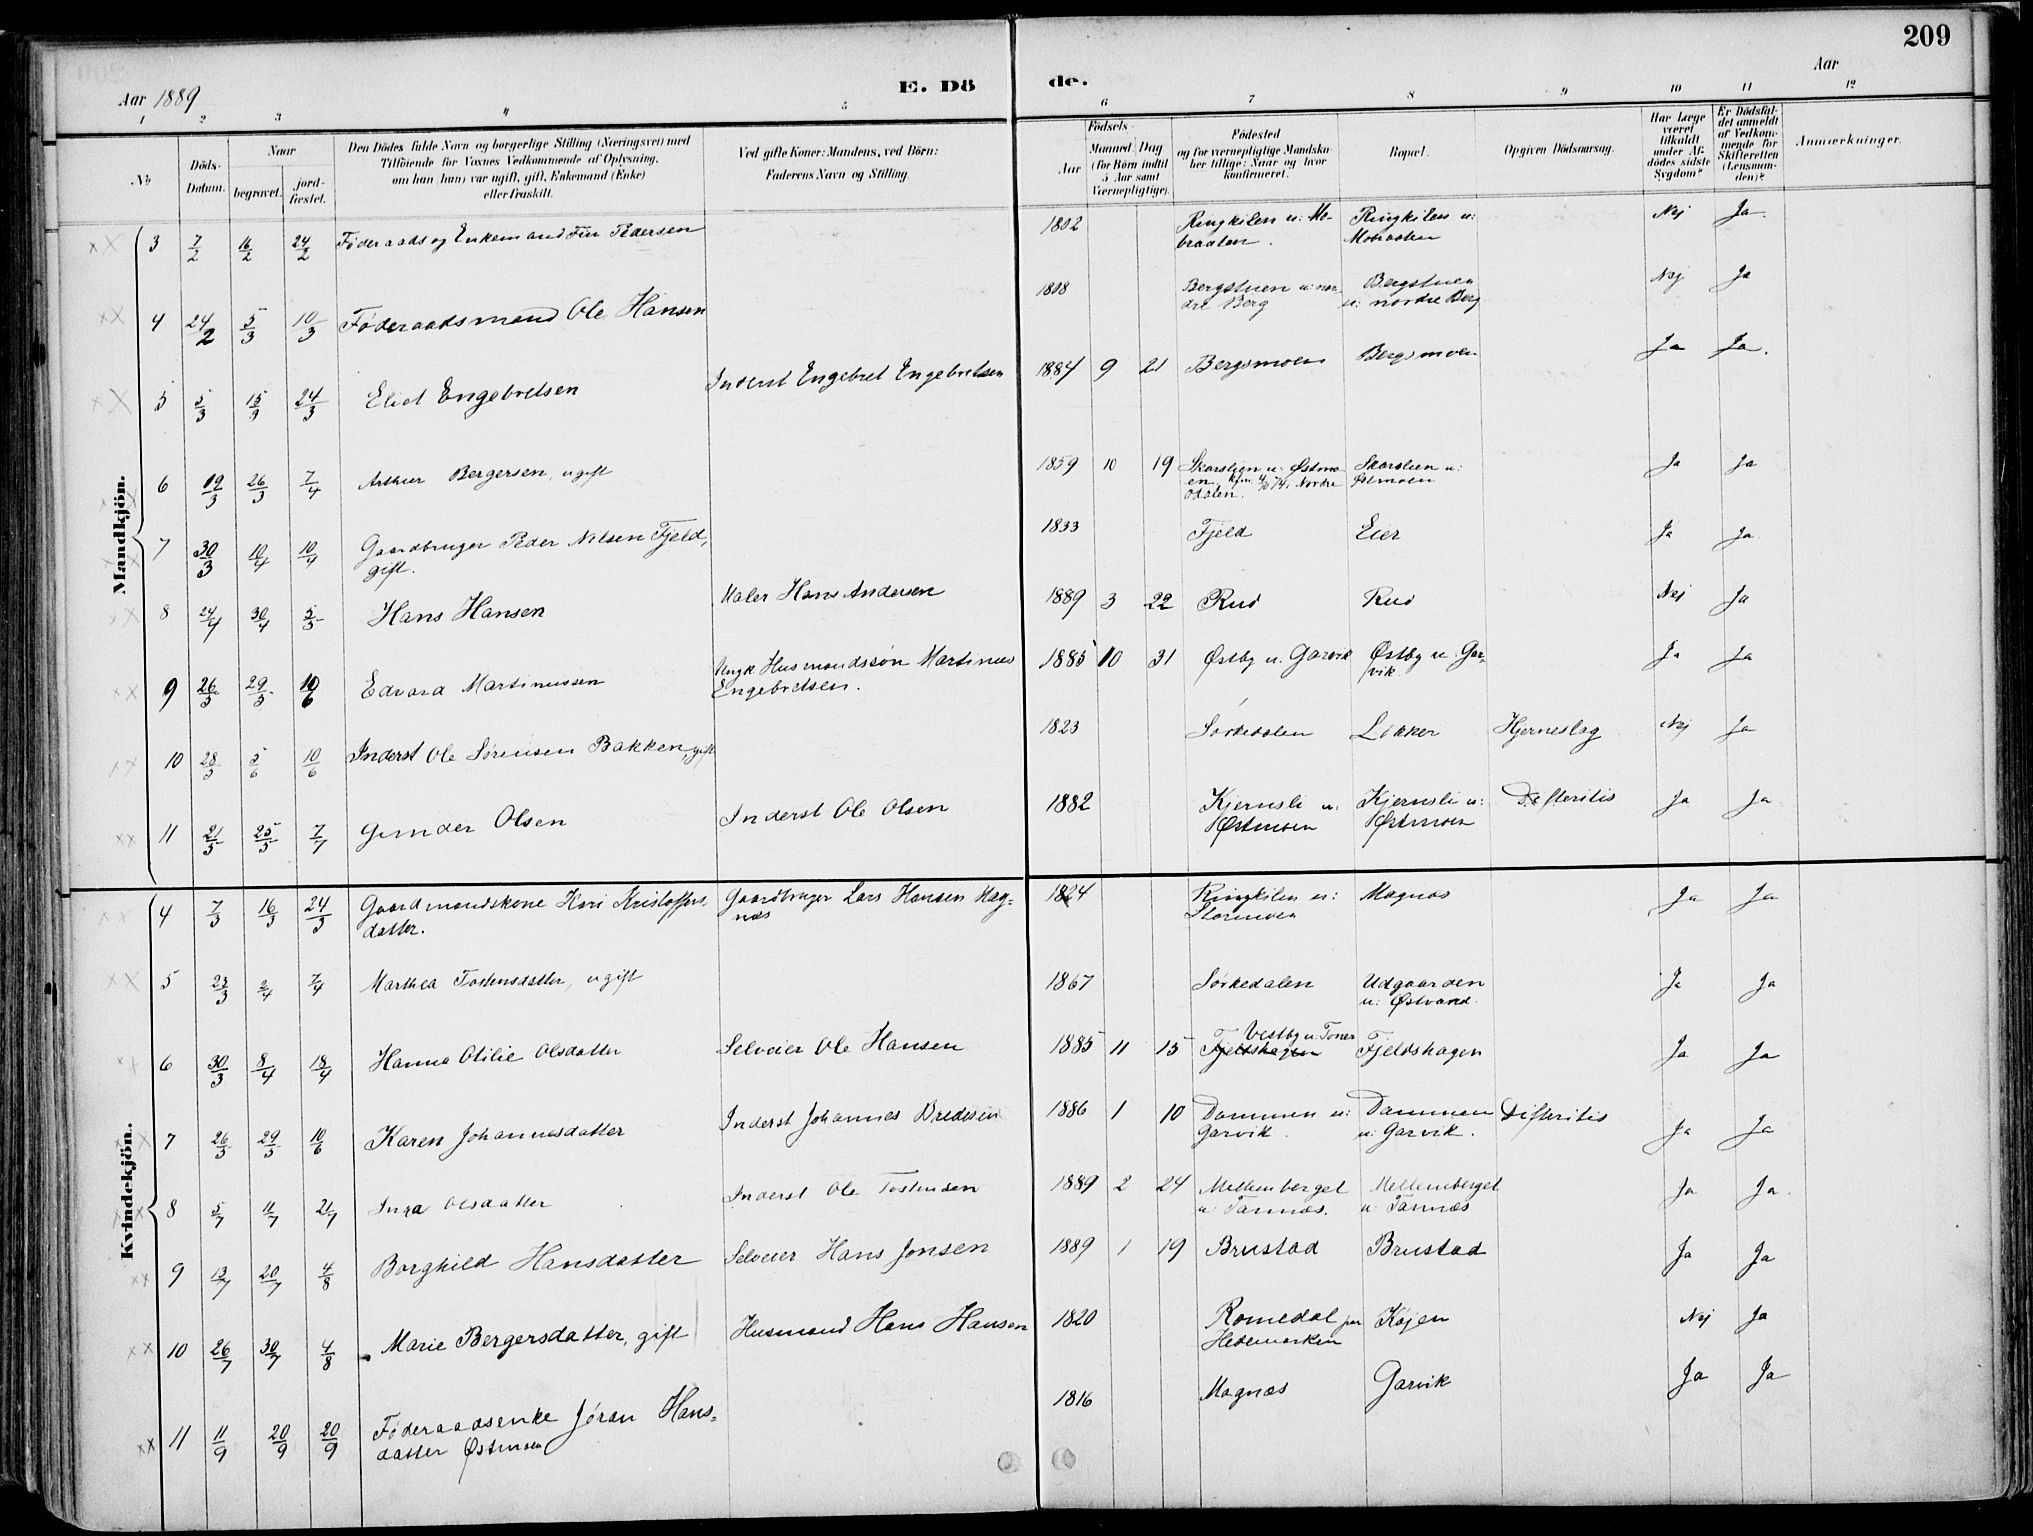 209
Aar 1889
E. Dö
de.
Aar
1 2 3 4 5 6 7 8 9 10 11 12
No
Döds-Datum.
Naar
begravet.
jord-fæstet.
Den Dödes fulde Navn og borgerlige Stilling (Næringsvei) med
Tilföiende for Voxnes Vedkommende af Oplysning,
om han (hun) var ugift, gift, Enkemand (Enke)
eller fraskilt.
Ved gifte Koner: Mandens, ved Börn:
Faderens Navn og Stilling.
Födsels-
Aar
Maaned Dag
(for Börn indtil
5 Aar samt
Værnepligtige).
Födested
og for værnepligtige Mandska-
ber tillige: Naar og hvor
konfirmeret.
Bopæl.
Opgiven Dödsaarsag.
Har Læge
været
tilkaldt
under Af-
dödes sidste
Sygdom?
Er Dödsfal-
det anmeldt
af Vedkom-
mende for
Skifteretten
(Lensman-
den)?
Anmærkninger.
Mandkjön.
3 7/2 16/2 24/2 Føderaads og Enkemand Pedersen 1802 Ringkilen u: Mo-
braaten. Ringkilen u:
Mobraaten Nej Ja.
4 24/2 5/3 10/3 Føderaadsmand Ole Hansen 1808 Bergstuen u: nor-
dre Berg Bergstuen
u: nordre Berg Nej Ja
5 5/3 15/3 24/3 Eliot Engebretsen Inderst Engebret Engebretsen 1884 9 21 Bergsmoen Bergsmoen Ja Ja.
6 19/3 26/3 7/4 Arthur Bergersen, ugift 1859 10 19 Skarslien u: Østmo-
en. Kfm. 4/10 74. Nordre
Odalen. Skarslien u:
Østmoen Ja Ja
7 30/3 10/4 10/4 Gaardbruger Peder Nilsen Fjeld,
gift. 1833 Fjeld Eier Ja Ja
8 24/4 30/4 5/5 Hans Hansen Maler Hans Andersen 1889 3 22 Rud Rud Nej Ja
9 26/5 29/5 10/6 Edvard Martinussen Ungk. Husmandssøn Martinus
Engebretsen. 1885 10 31 Østby u. Garvik Østby u. Gar-
vik Ja Ja
10 28/5 5/6 10/6 Inderst Ole Sørensen Bakken, gift 1823 Sørkedalen Løkker Hjerneslag Nej Ja
11 21/5 25/5 7/7 Gunder Olsen Inderst Ole Olsen 1882 Kjernsli u:
Østmoen Kjernsli u:
Østmoen Difteritis Ja Ja
Kvindekjön.
4 7/3 16/3 24/3 Gaardmandskone Kari Kristoffers-
datter. Gaardbruger Lars Hansen Mag-
næs 1824 Ringkilen u:
Stormoen Magnæs Ja Ja
5 23/3 2/4 7/4 Marthea Tostensdatter, ugift 1867 Sørkedalen Udgaarden
u: Østvand. Ja Ja
6 30/3 8/4 18/4 Hanna Otilie Olsdatter Selveier Ole Hansen 1885 11 15 Vestby u: Toner
Fjeldshagen Fjeldshagen Ja Ja
7 26/5 29/5 10/6 Karen Johannesdatter Inderst Johannes Bredesen 1886 1 10 Dammen u:
Garvik. Dammen
u: Garvik. Difteritis Ja Ja
8 5/7 11/7 21/7 Inga Olsdatter Inderst Ole Tostensen 1889 2 24 Mellemberget
u: Tannæs. Mellemberget
u: Tannæs Ja Ja.
9 13/7 20/7 4/8 Borghild Hansdatter Selveier Hans Jonsen 1889 1 19 Brustad Brustad Ja Ja
10 26/7 30/7 4/8 Marie Bergersdatter, gift Husmand Hans Hansen 1820 Romedal paa
Hedemarken Køjen Nej Ja
11 11/9 20/9 20/9 Føderaadsenke Jøran Hans-
datter Østmoen 1816 Magnæs Garvik Ja Ja